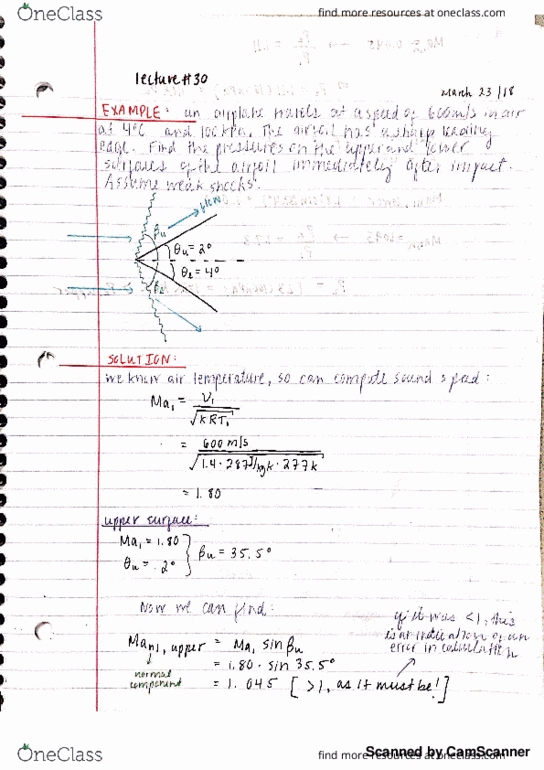 OneClass
find more resources at oneclass.com
lecture #30
March 23/18
EXAMPLE: an airplane travels at a speed of 600m/s in air
at 4°C and 100kPa. The airfoil has a sharp leading
edge. Find the pressures on the upper and lower
surfaces of the airfoil immediately after impact.
Assume weak shocks.
flow
βu
θu = 2°
θl = 4°
βl
SOLUTION:
we know air temperature, so can compute sound speed:
Ma₁ = V₁
√kRT₁
= 600 m/s
√1.4 · 287 J/kgK · 277K
= 1.80
upper surface:
Ma₁ = 1.80
θu = 2°
} βu = 35.5°
Now we can find:
Man1, upper = Ma, sin βu
= 1.80 · sin 35.5°
= 1.045 [ >1, as it must be! ]
normal
component
if it was <1, this
is an indication of an
error in calculation
OneClass
find more resources at oneclass.com
Scanned by CamScanner